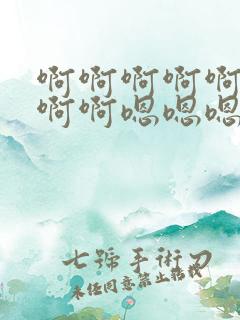 啊啊啊啊啊
啊啊嗯嗯嗯
七號手術刀
未经同意禁止转载